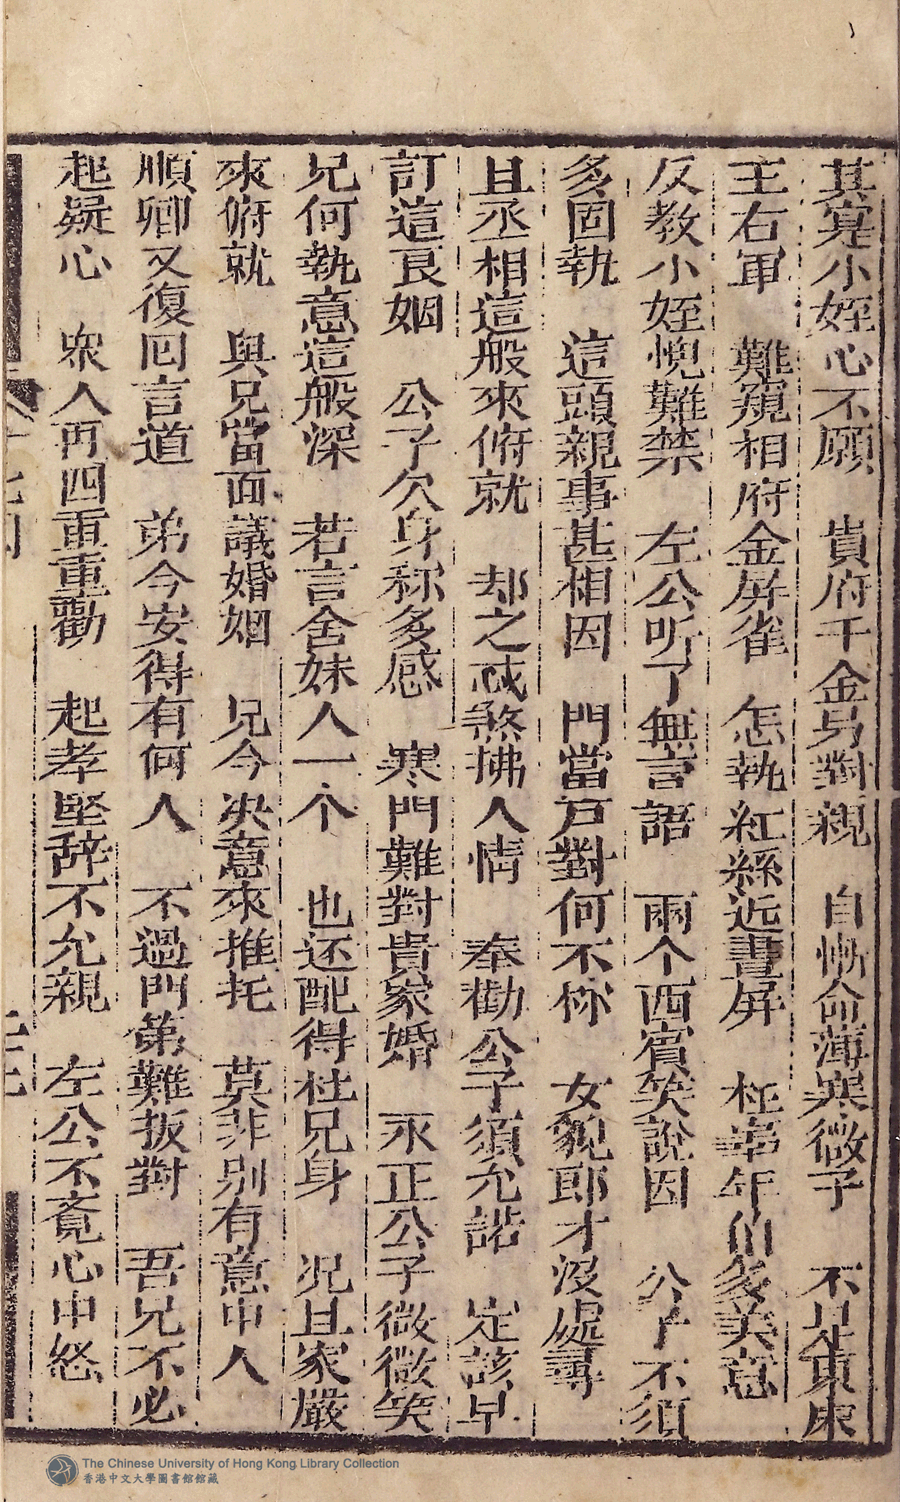 其寔小姪心不願　貴府千金另對親　自慚命薄寒微子　不是東床
王右軍　難窺相府金屏雀　怎執紅絲近畫屏　枉辜年伯多美意
反教小姪愧難禁　左公听了無言語　兩个西賓笑說因　公子不須
多固執　這頭親事甚相因　門當戶對何不称　女貌郎才沒處尋
且丞相這般來俯就　却之忒煞拂人情　奉勸公子須允諾　定該早
訂這良姻　公子欠身称多感　寒門難對貴家婚　永正公子微微笑
兄何執意這般深　若言舍妹人一个　也还配得杜兄身　况且家嚴
來俯就　與兄當面議婚姻　兄今决意來推托　莫非别有意中人
順卿又復囘言道　弟今安得有何人　不過門第難扳對　吾兄不必
起疑心　衆人再四重重勸　起孝堅辞不允親　左公不覔心中怒
The Chinese University of Hong Kong Library Collection
香港中文大學圖書館館藏